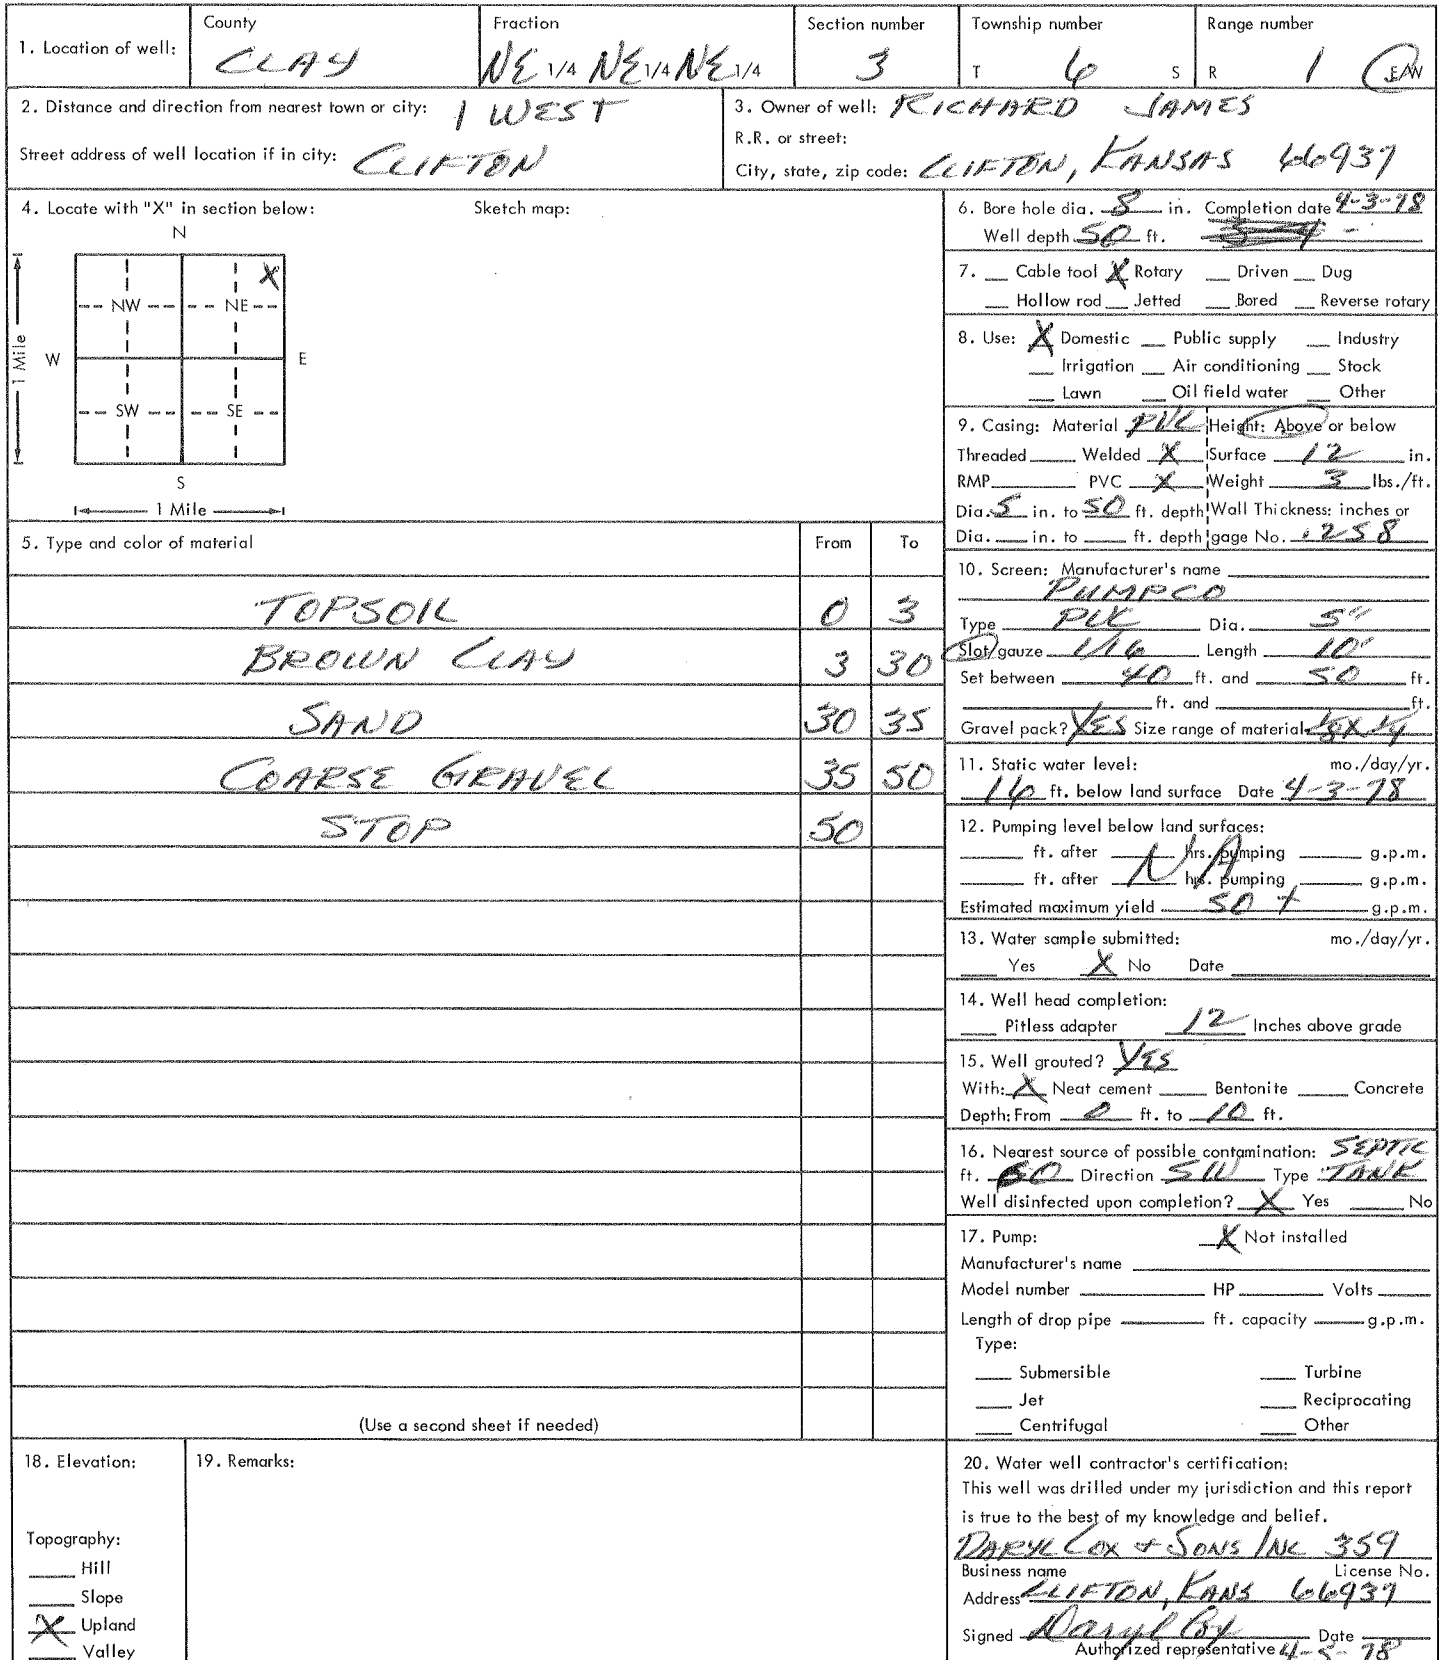 1. Location of well: County CLAY Fraction NE 1/4 NE 1/4 NE 1/4 Section number 3 Township number T 6 S Range number R 1 E/W
2. Distance and direction from nearest town or city: 1 WEST
Street address of well location if in city: CLIFTON
3. Owner of well: RICHARD JAMES
R.R. or street:
City, state, zip code: CLIFTON, KANSAS 66937
4. Locate with "X" in section below: Sketch map:
N
X
NW NE
W E
1 Mile
SW SE
S
1 Mile
5. Type and color of material From To
TOPSOIL 0 3
BROWN CLAY 3 30
SAND 30 35
COARSE GRAVEL 35 50
STOP 50
(Use a second sheet if needed)
6. Bore hole dia. 8 in. Completion date 4-3-78
Well depth 50 ft.
7. Cable tool X Rotary Driven Dug
Hollow rod Jetted Bored Reverse rotary
8. Use: X Domestic Public supply Industry
Irrigation Air conditioning Stock
Lawn Oil field water Other
9. Casing: Material PVC Height: Above or below
Threaded Welded X Surface 12 in.
RMP PVC X Weight 3 lbs./ft.
Dia. 5 in. to 50 ft. depth Wall Thickness: inches or
Dia. in. to ft. depth gage No. .258
10. Screen: Manufacturer's name
PUMPCO
Type PVC Dia. 5"
Slot/gauze 1/16 Length 10'
Set between 40 ft. and 50 ft.
ft. and ft.
Gravel pack? YES Size range of material 1/8 X 1/4
11. Static water level: mo./day/yr.
16 ft. below land surface Date 4-3-78
12. Pumping level below land surfaces:
ft. after hrs. pumping g.p.m.
NA
ft. after hrs. pumping g.p.m.
Estimated maximum yield 50 + g.p.m.
13. Water sample submitted: mo./day/yr.
Yes X No Date
14. Well head completion:
Pitless adapter 12 Inches above grade
15. Well grouted? YES
With: X Neat cement Bentonite Concrete
Depth: From 0 ft. to 10 ft.
16. Nearest source of possible contamination: SEPTIC
ft. 60 Direction SW Type TANK
Well disinfected upon completion? X Yes No
17. Pump: X Not installed
Manufacturer's name
Model number HP Volts
Length of drop pipe ft. capacity g.p.m.
Type:
Submersible Turbine
Jet Reciprocating
Centrifugal Other
18. Elevation:
Topography:
Hill
Slope
X Upland
Valley
19. Remarks:
20. Water well contractor's certification:
This well was drilled under my jurisdiction and this report
is true to the best of my knowledge and belief.
DARYL COX + SONS INC 359
Business name License No.
Address CLIFTON, KANS 66937
Signed Daryl Cox Date
Authorized representative 4-5-78